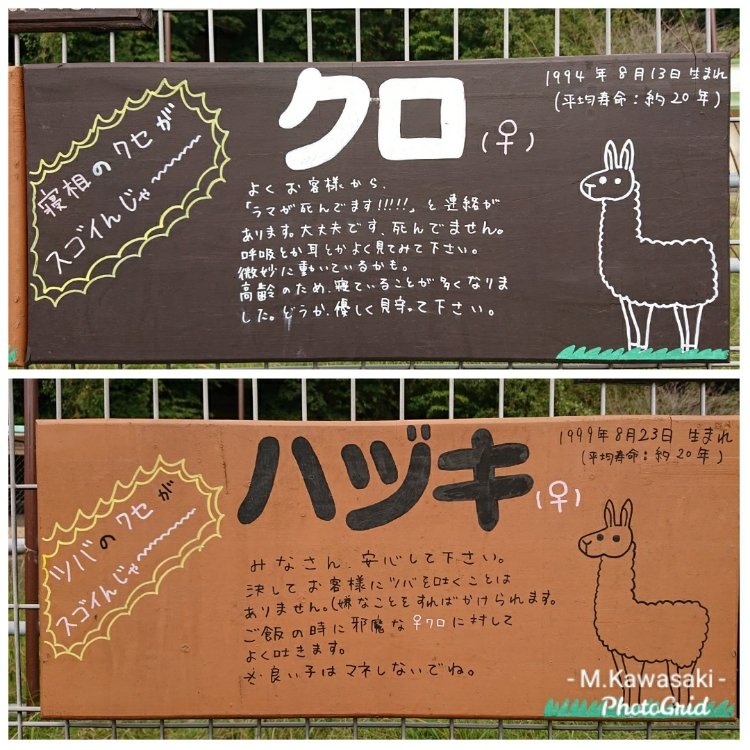 1994年8月13日生まれ
(平均寿命：約20年)
クロ(♀)
寝相のクセが
スゴイんじゃ〜〜〜
よくお客様から、
「ラマが死んでます!!!!!」と連絡が
あります。大丈夫です、死んでません。
呼吸とか耳とかよく見てみて下さい。
微妙に動いているかも。
高齢のため、寝ていることが多くなりま
した。どうか、優しく見守って下さい。
1999年8月23日生まれ
(平均寿命：約20年)
ハヅキ(♀)
ツバのクセが
スゴイんじゃ〜〜〜
みなさん、安心して下さい。
決してお客様にツバを吐くことは
ありません。(嫌なことをすればかけられます。
ご飯の時に邪魔な♀クロに対して
よく吐きます。
良い子はマネしないでね。
- M.Kawasaki -
PhotoGrid